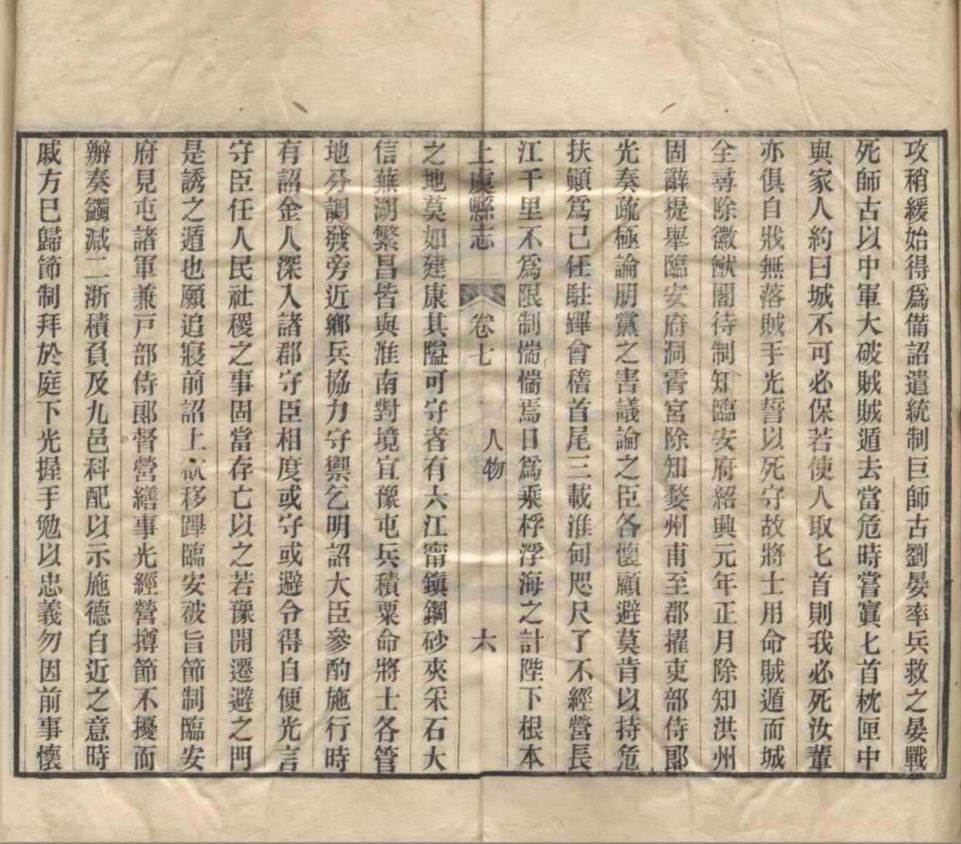 攻稍緩始得爲備詔遣統制巨師古劉晏率兵救之晏戰
死師古以中軍大破賊賊遁去當危時嘗寘匕首枕匣中
與家人約曰城不可必保若使人取匕首則我必死汝輩
亦俱自戕無落賊手光誓以死守故將士用命賊遁而城
全尋除徽猷閣待制知臨安府紹興元年正月除知洪州
固辭提舉臨安府洞霄宮除知婺州甫至郡擢吏部侍郎
光奏疏極論朋黨之害議論之臣各懷顧避莫肯以持危
扶顚爲己任駐蹕會稽首尾三載淮甸咫尺了不經營長
江千里不爲限制惴惴焉日爲乘桴浮海之計陛下根本
上虞縣志 卷七 人物 六
之地莫如建康其隘可守者有六江甯鎮鋼砂夾采石大
信蕪湖繁昌皆與淮南對境宜豫屯兵積粟命將士各管
地分調發旁近鄉兵協力守禦乞明詔大臣參酌施行時
有詔金人深入諸郡守臣相度或守或避令得自便光言
守臣任人民社稷之事固當存亡以之若豫開遷避之門
是誘之遁也願追寢前詔上欲移蹕臨安破旨節制臨安
府見屯諸軍兼戸部侍郎督營繕事光經營撙節不擾而
辦奏蠲減二浙積負及九邑科配以示施德自近之意時
戚方巳歸節制拜於庭下光握手勉以忠義勿因前事懷